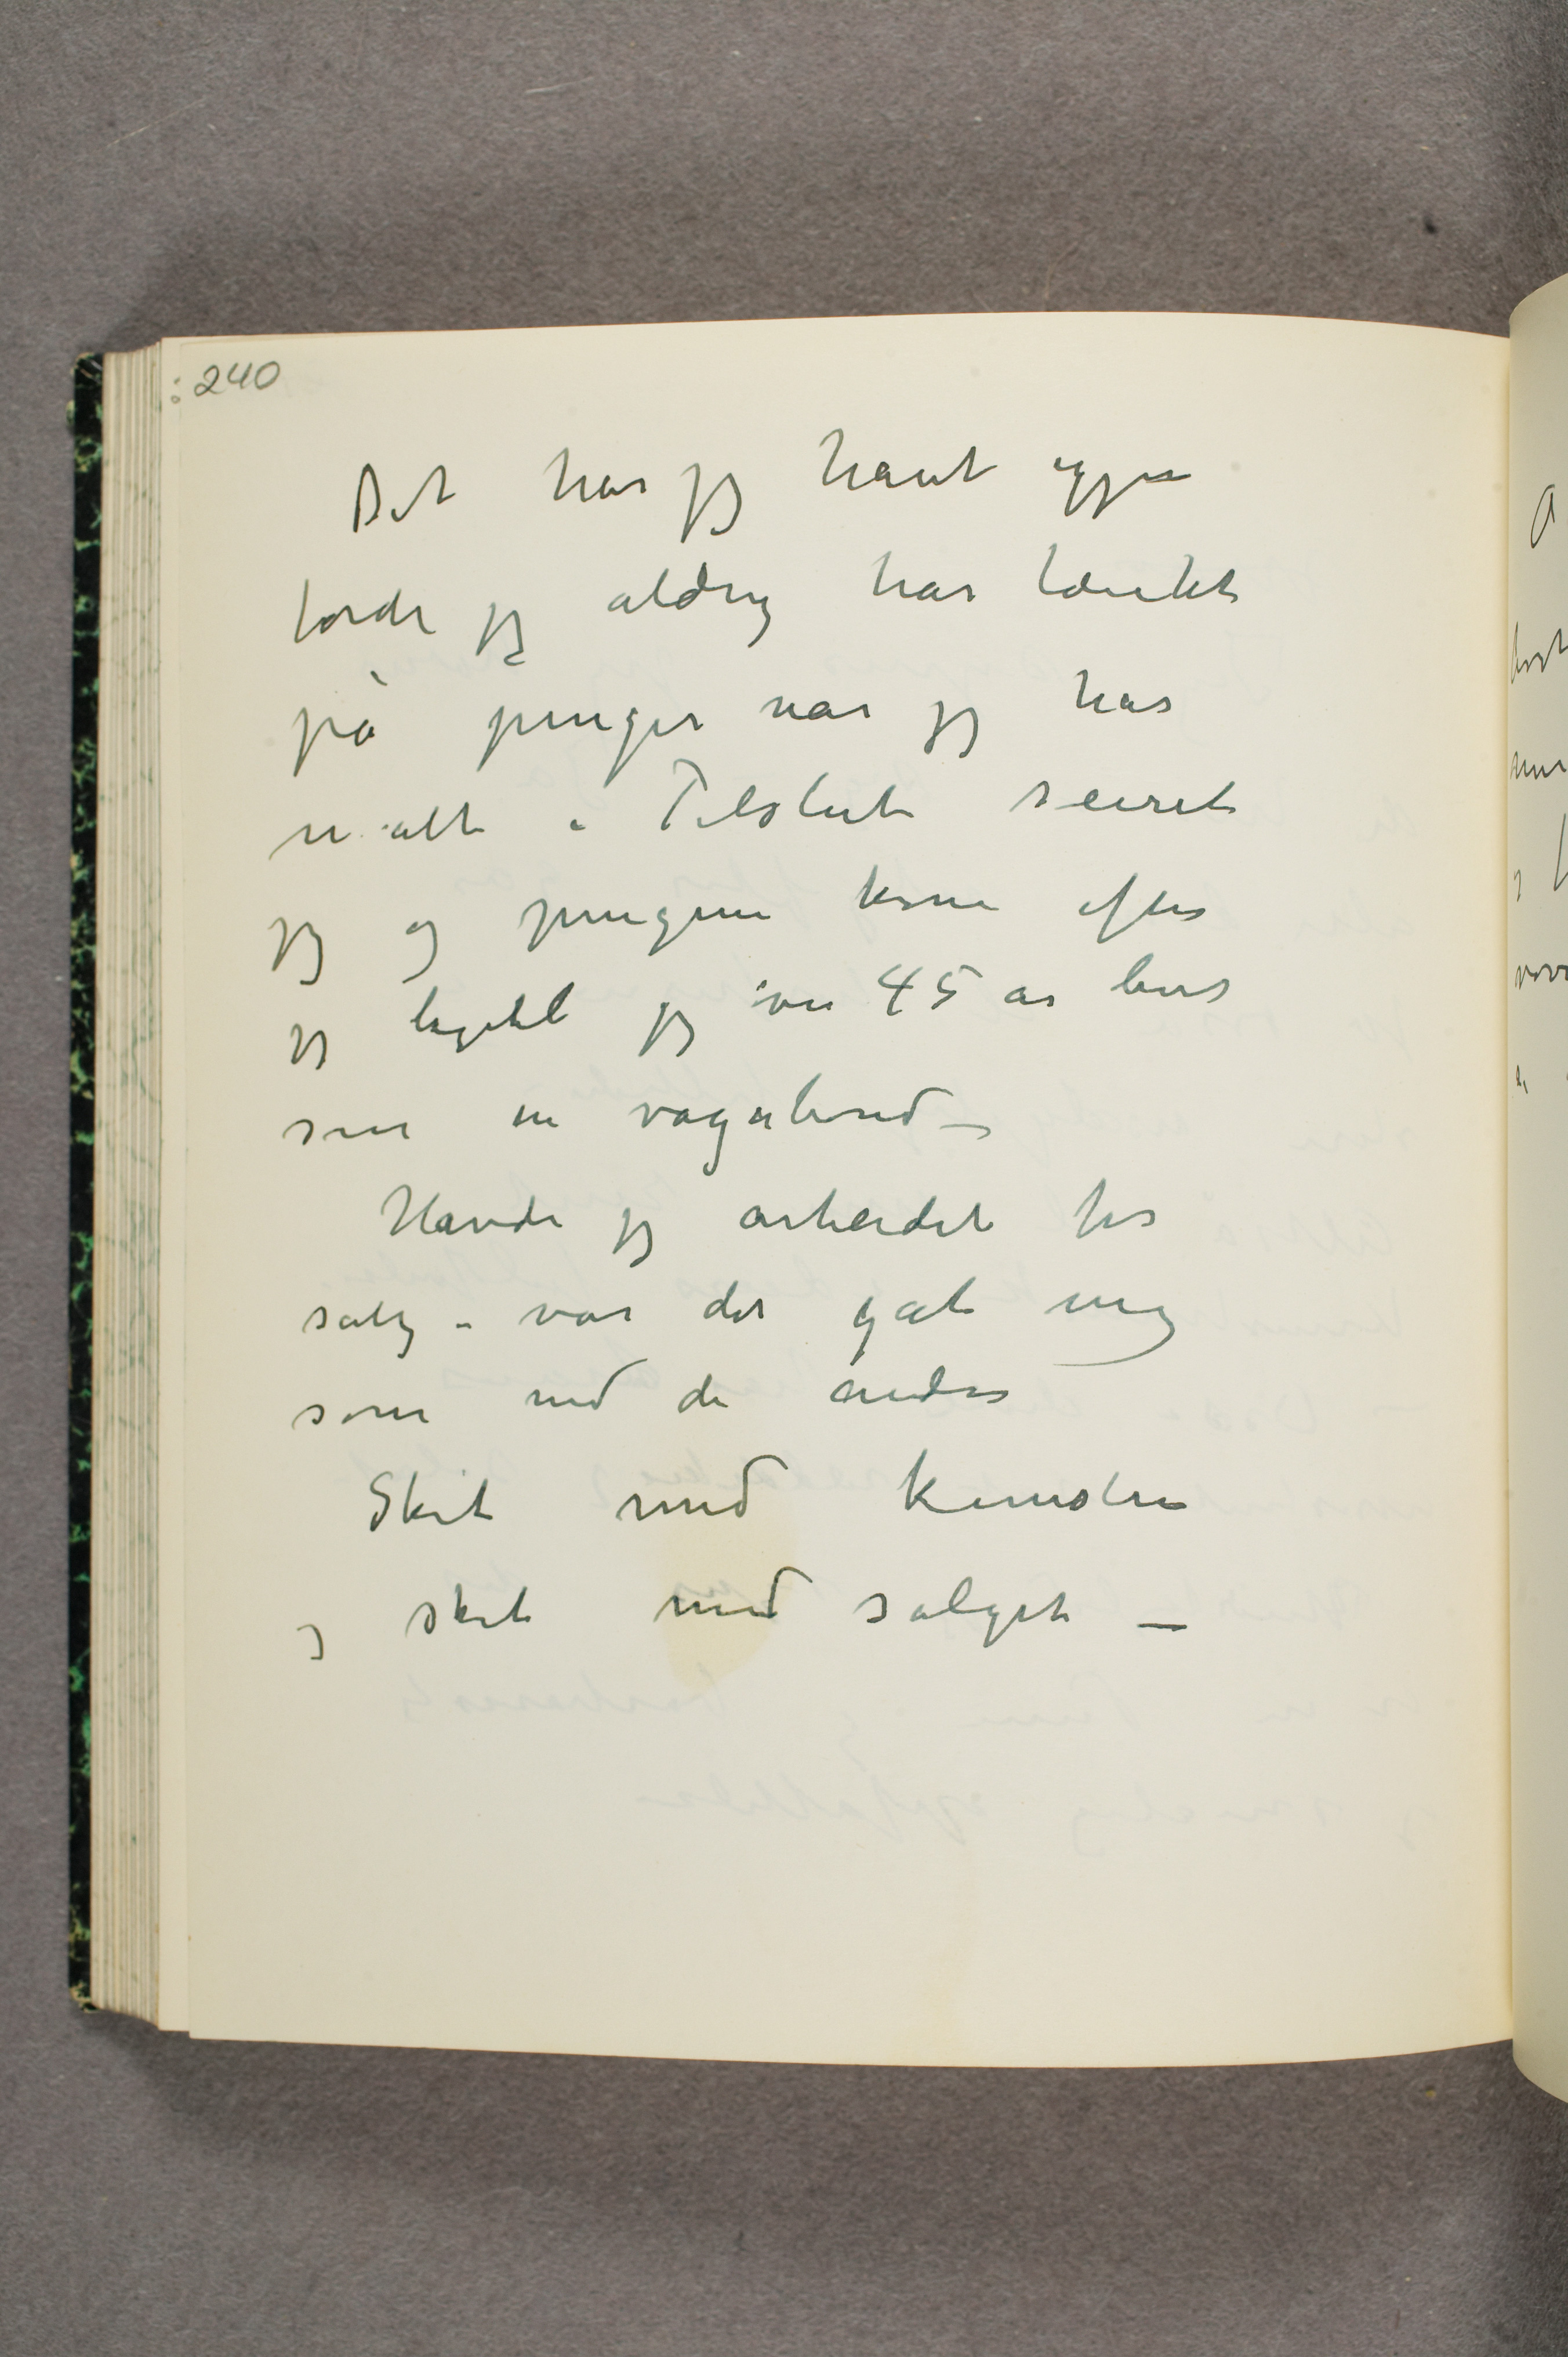 : 240
Det har jeg havt igjen
fordi jeg aldrig har tænkt
på penger når jeg har
malt - Tilslut seiret
jeg og pengene kom efter
jeg ligetil jeg var 45 år leves
som en vagabond –
Havde jeg arbeidet for
salg – var det gåt mig
som med de andre
Skit med kunsten
og skit med salget –